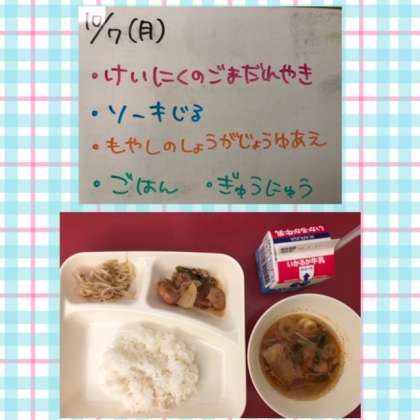 10/7(月)
・けいにくのごまだれやき
・ソーキじる
・もやしのしょうがじょうゆあえ
・ごはん ・ぎゅうにゅう